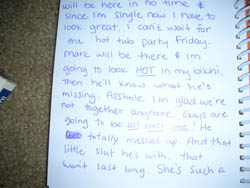 will be here in no time &
since i'm single now I have to
look great. i can't wait for
the hot tub party Friday.
Mark will be there & i'm
going to look HOT in my bikini.
Then he'll know what he's
missing. Asshole i'm glad we're
not together anymore. Guys are
going to be all over me! He
totally messed up. And that
little slut he's with... that
won't last long. She's such a